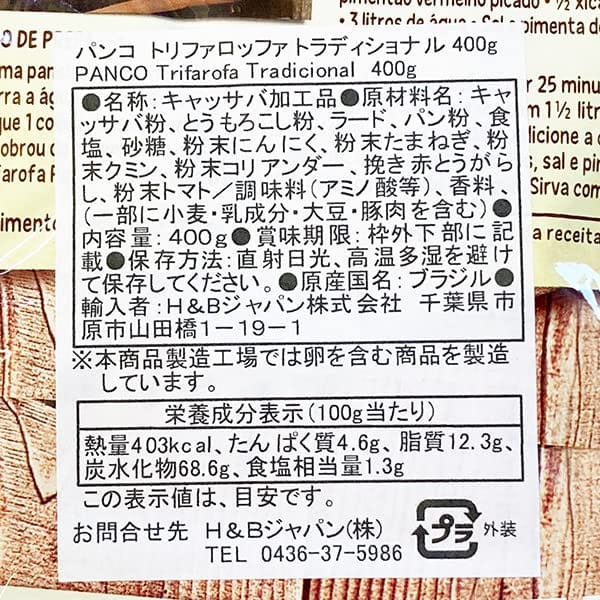 pimentão vermelho picado • ½ xíc
• 3 litros de água • Sal e pimenta do
パンコ トリファロッファ トラディショナル 400g
PANCO Trifarofa Tradicional 400g
●名称：キャッサバ加工品●原材料名：キャ
ッサバ粉、とうもろこし粉、ラード、パン粉、食
塩、砂糖、粉末にんにく、粉末たまねぎ、粉
末クミン、粉末コリアンダー、挽き赤とうがら
し、粉末トマト／調味料（アミノ酸等）、香料、
（一部に小麦・乳成分・大豆・豚肉を含む）●
内容量：400g●賞味期限：枠外下部に記
載●保存方法：直射日光、高温多湿を避け
て保存してください。●原産国名：ブラジル●
輸入者：H&Bジャパン株式会社 千葉県市
原市山田橋1－19－1
※本商品製造工場では卵を含む商品を製造
しています。
栄養成分表示（100g当たり）
熱量403kcal、たんぱく質4.6g、脂質12.3g、
炭水化物68.6g、食塩相当量1.3g
この表示値は、目安です。
お問合せ先 H&Bジャパン（株）
TEL 0436-37-5986
プラ
外装
O DE
ma pan
rra a ág
que 1 co
obrou d
rifarofa P
imento
r 25 minu
m 1½ litr
dicione a c
s, sal e pi
Sirva com
a receita